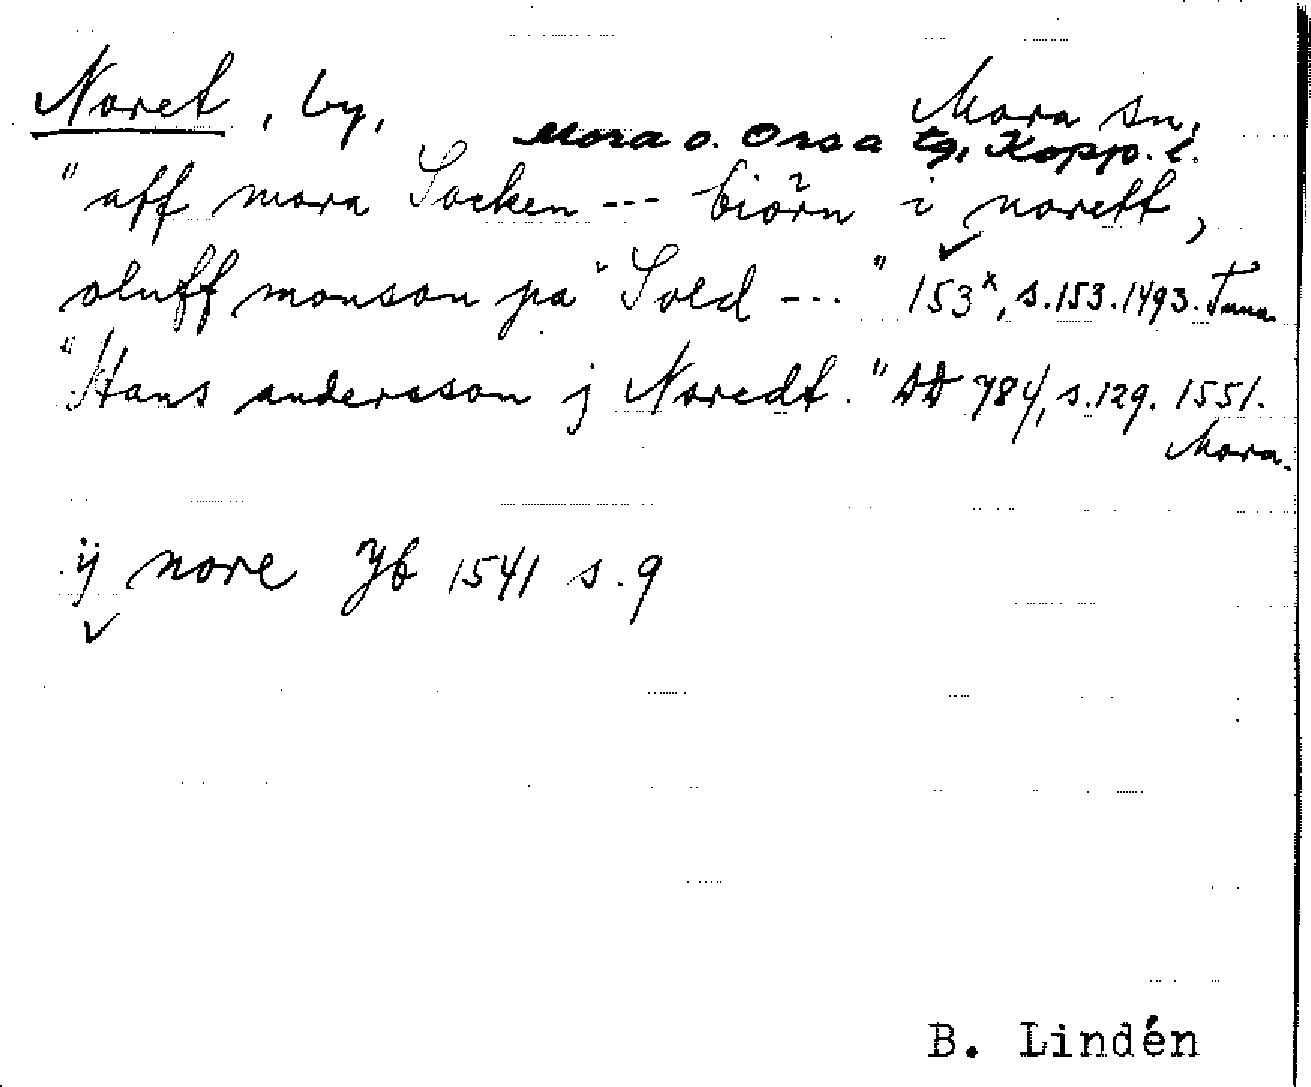 Noret, by, Mora sn,
Mora o. Orsa tg, Kopp. l.
"aff mora Socken --- biörn i norett,
oluff monson pa Sold --- " 153x, s.153. 1493. Tuna.
"Hans andersson j Noredt." DD 784, s.129. 1551.
Mora.
ij nore Jb 1541 s. 9
B. Lindén